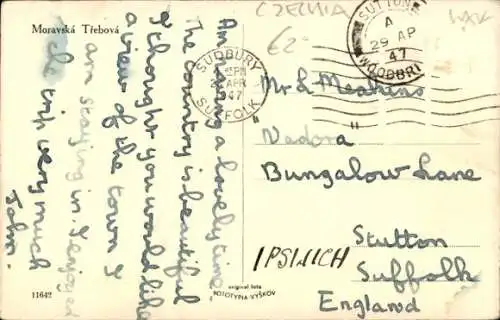 Moravská Třebová
CZECHIA
€2
SUDBURY
SUFFOLK
APR
47
SUTTON
A
29 AP
47
WOODBRI
Am having a lovely time.
The country is beautiful
I thought you would like
a view of the town I
am staying in. I enjoyed
the trip very much
John.
Mr L Meakins
"Vadora"
Bungalow Lane
Stutton
IPSWICH
Suffolk
England
original foto
FOTOTYPIA-VYŠKOV
11642